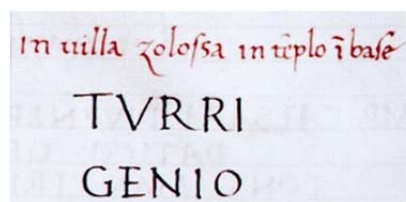 in uilla zolossa in tẽplo ĩ base
TVRRI
GENIO